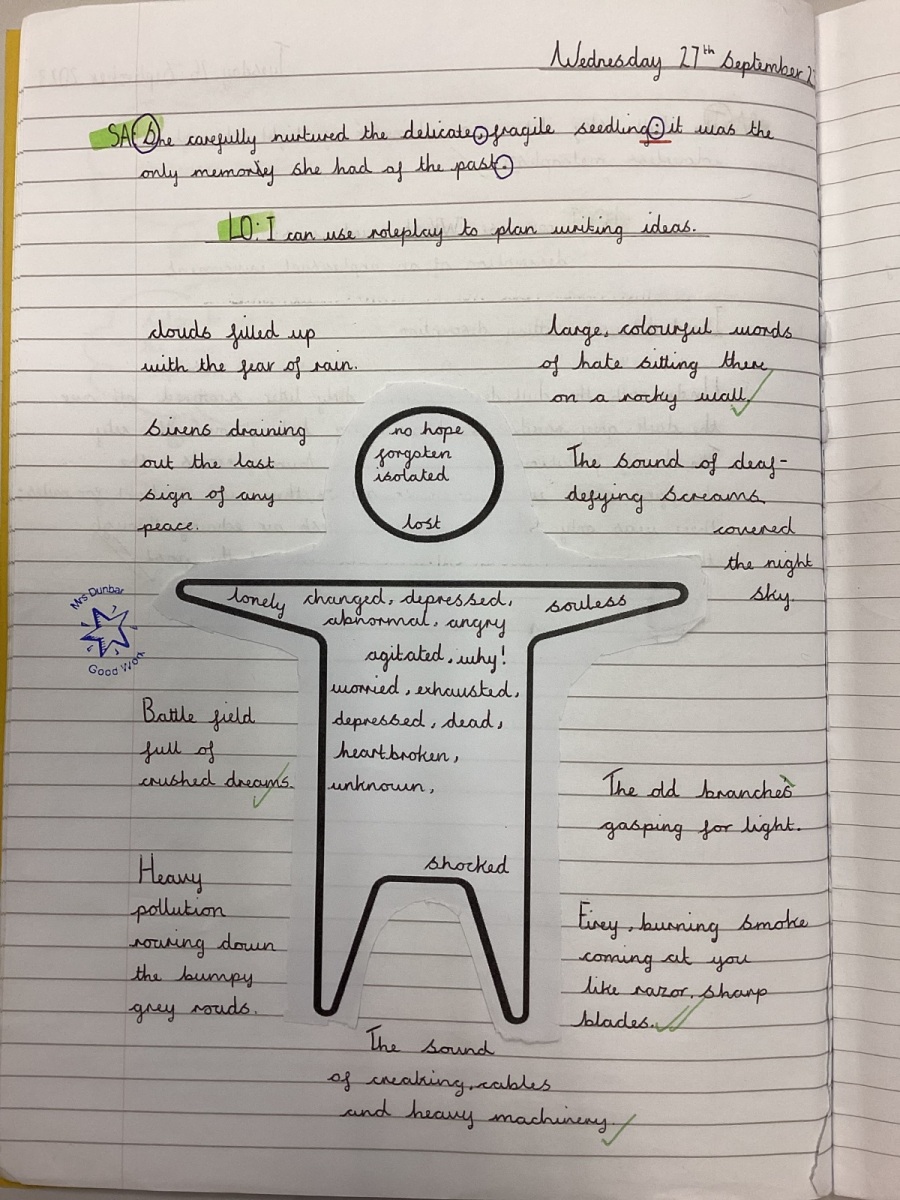 Wednesday 27th September 2
SA: She carefully nurtured the delicate, fragile seedling: it was the
only memory she had of the past.
LO: I can use roleplay to plan writing ideas.
clouds filled up
with the fear of rain.
large, colourful words
of hate sitting there
on a rocky wall.
sirens draining
out the last
sign of any
peace.
no hope
forgoten
isolated
lost
The sound of deaf-
defying screams
covered
the night
sky.
Mrs Dunbar
Good Work
lonely changed, depressed, souless
abnormal, angry
agitated, why!
worried, exhausted,
depressed, dead,
heartbroken,
unknown,
shocked
Battle field
full of
crushed dreams.
The old branches
gasping for light.
Heavy
pollution
roaring down
the bumpy
grey roads.
Firey, burning smoke
coming at you
like razor, sharp
blades.
The sound
of creaking, cables
and heavy machinery.